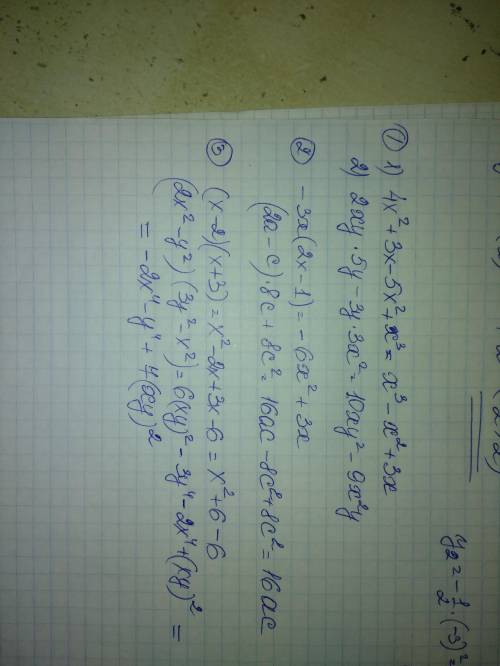 y₂ = -1/2 · (-3)² =
① 1) 4x² + 3x - 5x² + x³ = x³ - x² + 3x
2) 2xy · 5y - 3y · 3x² = 10xy² - 9x²y
② -3x(2x-1) = -6x² + 3x
(2a - c) · 8c + 8c² = 16ac - 8c² + 8c² = 16ac
③ (x-2)(x+3) = x² - 2x + 3x - 6 = x² + 6 - 6
(2x² - y²)(3y² - x²) = 6(xy)² - 3y⁴ - 2x⁴ + (xy)² =
= -2x⁴ - y⁴ + 4(xy)²